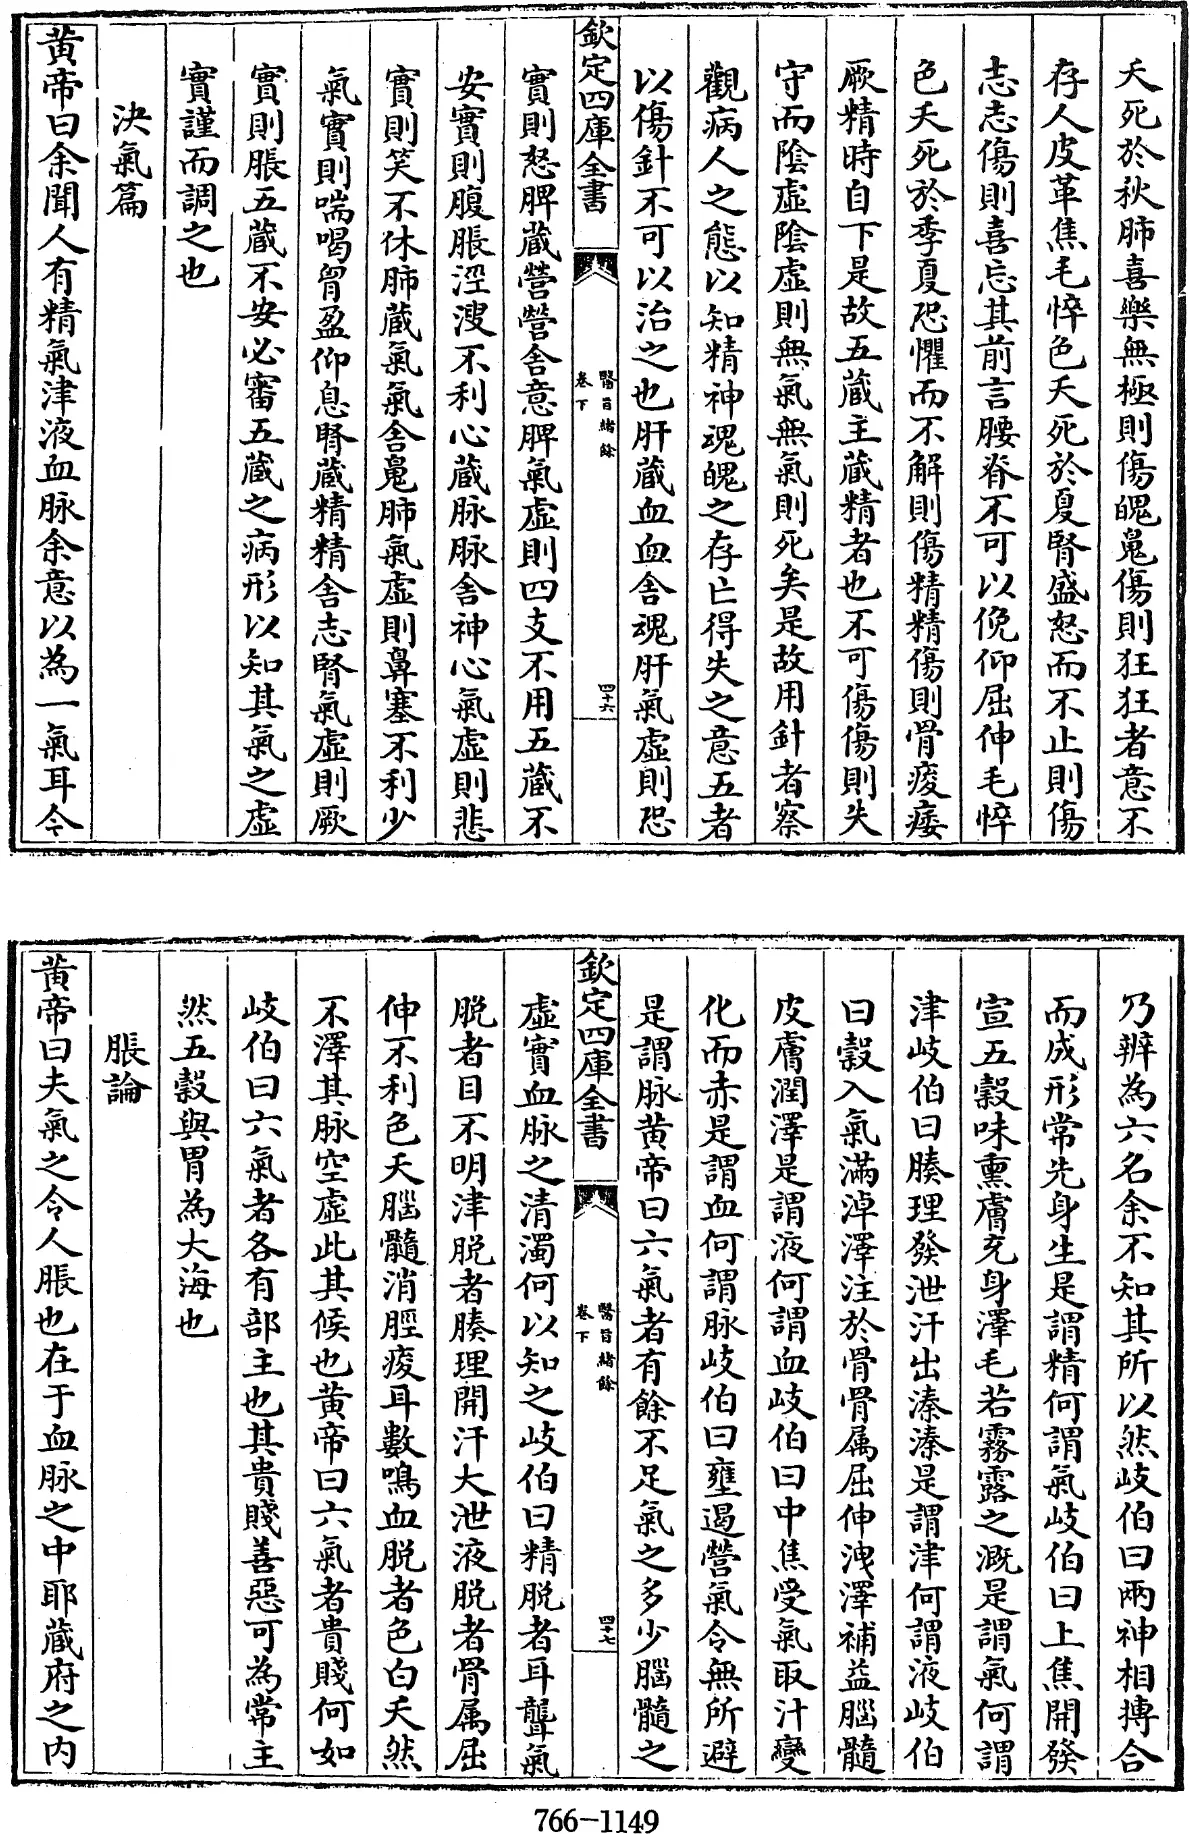 夭死於秋肺喜樂無極則傷魄䰟傷則狂狂者意不
存人皮革焦毛悴色夭死於夏腎盛怒而不止則傷
志志傷則喜忘其前言腰脊不可以俛仰屈伸毛悴
色夭死於季夏恐懼而不解則傷精精傷則骨痠痿
厥精時自下是故五蔵主蔵精者也不可傷傷則失
守而陰虛陰虛則無氣無氣則死矣是故用針者察
觀病人之態以知精神魂魄之存亡得失之意五者
以傷針不可以治之也肝蔵血血舍魂肝氣虛則恐
欽定四庫全書
醫旨緒餘
卷下
四十六
實則怒脾蔵營營舍意脾氣虛則四支不用五蔵不
安實則腹脹涇溲不利心蔵脉脉舍神心氣虛則悲
實則笑不休肺蔵氣氣舍䰟肺氣虛則鼻塞不利少
氣實則喘喝胷盈仰息腎蔵精精舍志腎氣虛則厥
實則脹五蔵不安必審五蔵之病形以知其氣之虛
實謹而調之也
決氣篇
黄帝曰余聞人有精氣津液血脉余意以為一氣耳今
乃辨為六名余不知其所以然岐伯曰兩神相搏合
而成形常先身生是謂精何謂氣岐伯曰上焦開發
宣五穀味熏膚充身澤毛若霧露之溉是謂氣何謂
津岐伯曰腠理發泄汗出溱溱是謂津何謂液岐伯
曰穀入氣滿淖澤注於骨骨属屈伸洩澤補益腦髓
皮膚潤澤是謂液何謂血岐伯曰中焦受氣取汁變
化而赤是謂血何謂脉岐伯曰壅遏營氣令無所避
是謂脉黄帝曰六氣者有餘不足氣之多少腦髓之
欽定四庫全書
醫旨緒餘
卷下
四十七
虛實血脉之清濁何以知之岐伯曰精脱者耳聾氣
脱者目不明津脱者腠理開汗大泄液脱者骨属屈
伸不利色夭腦髓消脛痠耳數鳴血脱者色白夭然
不澤其脉空虛此其候也黄帝曰六氣者貴賤何如
岐伯曰六氣者各有部主也其貴賤善惡可為常主
然五穀與胃為大海也
脹論
黄帝曰夫氣之令人脹也在于血脉之中耶蔵府之内
766-1149